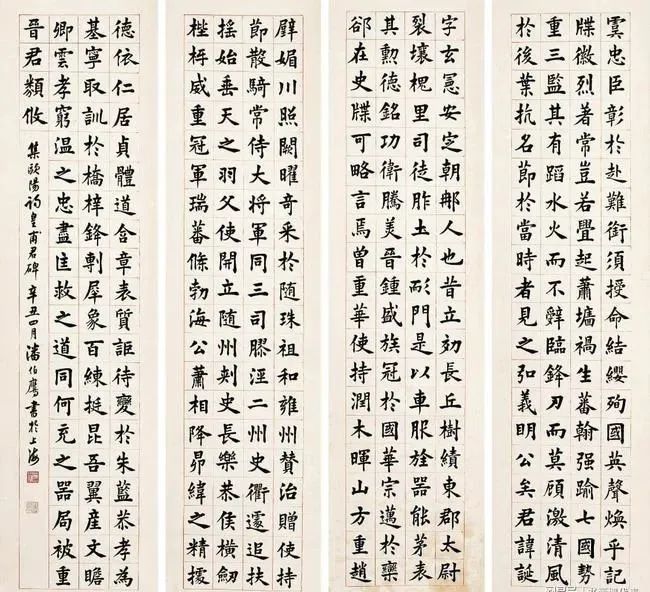 虞忠臣彰於赴難銜須授命結纓殉國英聲煥乎記
牒徽烈著常豈若釁起蕭墻禍生蕃翰强踰七國勢
重三監其有蹈水火而不辭臨鋒刃而莫顧激清風
於後葉抗名節於當時者見之弘義明公矣君諱誕
字玄憲安定朝那人也昔立効長丘樹績東郡太尉
裂壤槐里司徒胙土於耏門是以車服旌器能茅表
其勲德銘功衛騰美晉鍾盛族冠於國華宗邁於欒
郤在史牒可略言焉曾重華使持潤木暉山方重趙
璧媚川照闕曜奇采於随珠祖和雍州賛治贈使持
節散騎常侍大將軍同三司膠涇二州史衢遽追扶
摇始垂天之羽父使開立随州刺史長樂恭侯横劒
桱枑威重冠軍瑞蕃條勃海公蕭相降昴緯之精據
德依仁居貞體道含章表質詎待變於朱藍恭孝爲
基寧取訓於橋梓鋒剸犀象百練挺昆吾翼產文瞻
卿雲孝窮温之忠盡匡救之道同何充之器局被重
晉君纇攸
集歐陽詢皇甫君碑 辛丑四月潘伯鷹書於上海